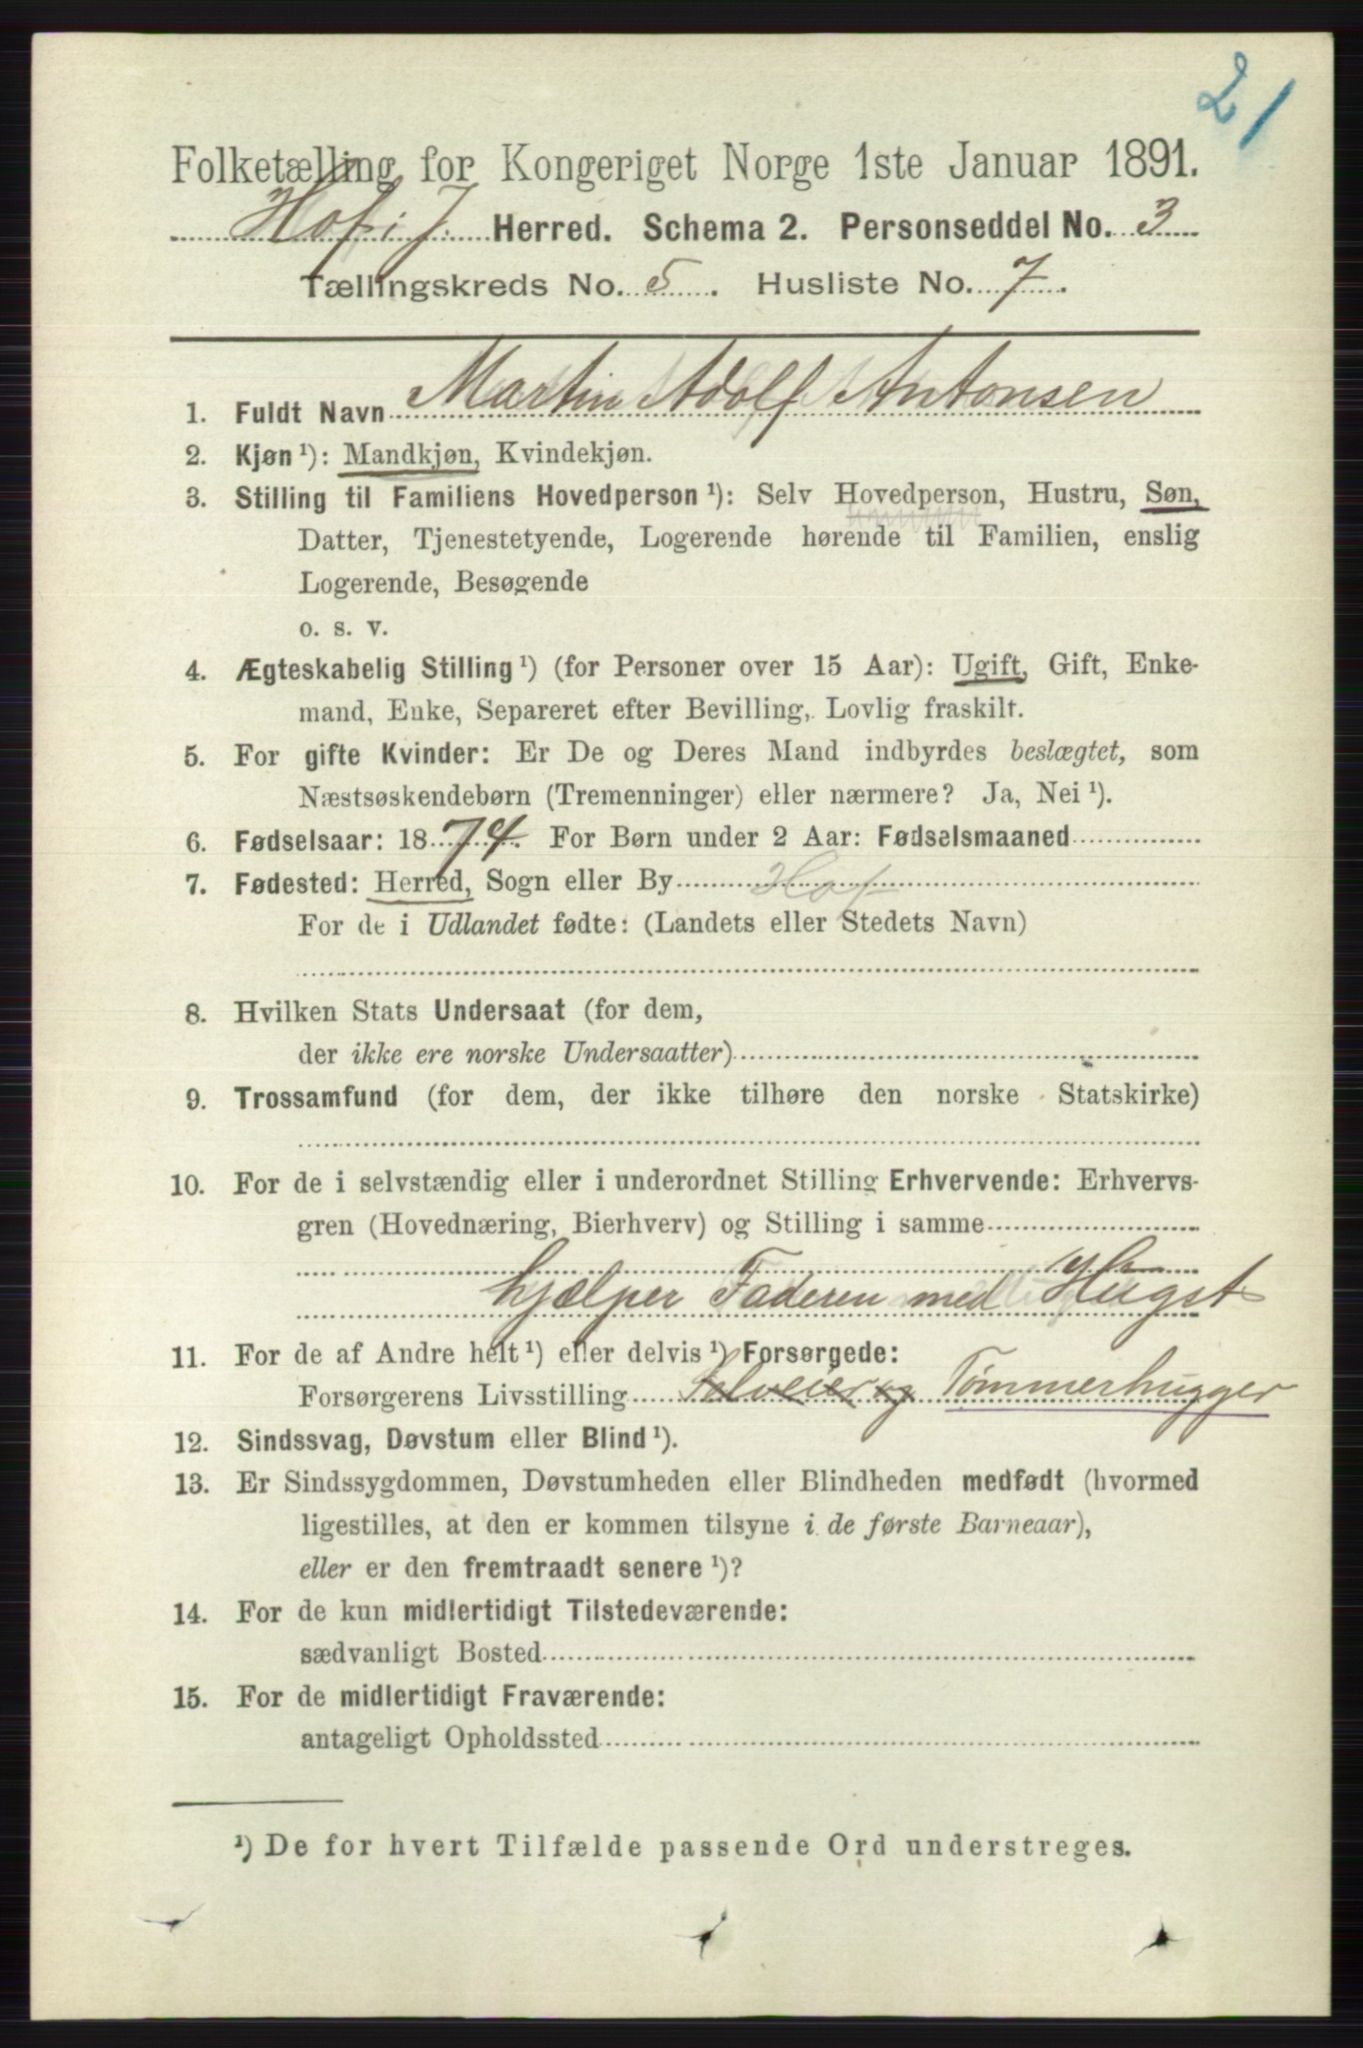 21
Folketælling for Kongeriget Norge 1ste Januar 1891.
Hof i J. Herred. Schema 2. Personseddel No. 3
Tællingskreds No. 5. Husliste No. 7.
1. Fuldt Navn Martin Adolf Antonsen
2. Kjøn ¹): Mandkjøn, Kvindekjøn.
3. Stilling til Familiens Hovedperson ¹): Selv Hovedperson, Hustru, Søn,
Datter, Tjenestetyende, Logerende hørende til Familien, enslig
Logerende, Besøgende
o. s. v.
4. Ægteskabelig Stilling ¹) (for Personer over 15 Aar): Ugift, Gift, Enke-
mand, Enke, Separeret efter Bevilling, Lovlig fraskilt.
5. For gifte Kvinder: Er De og Deres Mand indbyrdes beslægtet, som
Næstsøskendebørn (Tremenninger) eller nærmere? Ja, Nei ¹).
6. Fødselsaar: 1874. For Børn under 2 Aar: Fødselsmaaned
7. Fødested: Herred, Sogn eller By Hof
For de i Udlandet fødte: (Landets eller Stedets Navn)
8. Hvilken Stats Undersaat (for dem,
der ikke ere norske Undersaatter)
9. Trossamfund (for dem, der ikke tilhøre den norske Statskirke)
10. For de i selvstændig eller i underordnet Stilling Erhvervende: Erhvervs-
gren (Hovednæring, Bierhverv) og Stilling i samme
hjælper Faderen med Hugst
11. For de af Andre helt ¹) eller delvis ¹) Forsørgede:
Forsørgerens Livsstilling Selveier og Tømmerhugger
12. Sindssvag, Døvstum eller Blind ¹).
13. Er Sindssygdommen, Døvstumheden eller Blindheden medfødt (hvormed
ligestilles, at den er kommen tilsyne i de første Barneaar),
eller er den fremtraadt senere ¹)?
14. For de kun midlertidigt Tilstedeværende:
sædvanligt Bosted
15. For de midlertidigt Fraværende:
antageligt Opholdssted
¹) De for hvert Tilfælde passende Ord understreges.